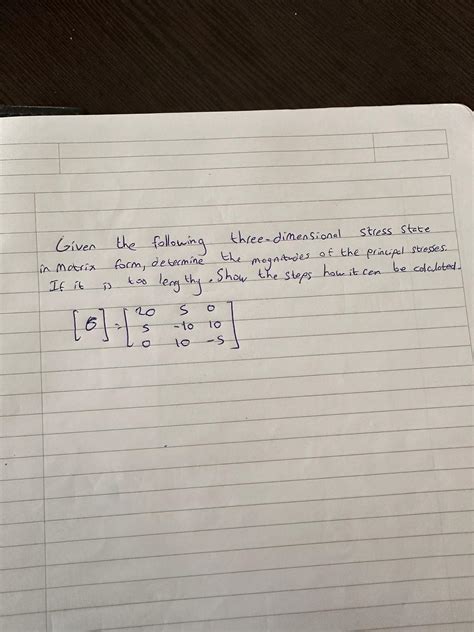 Given the following three-dimensional stress state
in matrix form, determine the magnitudes of the principal stresses.
If it is too lengthy. Show the steps how it can be calculated.
[σ] = [20 5 0
5 -10 10
0 10 -5]